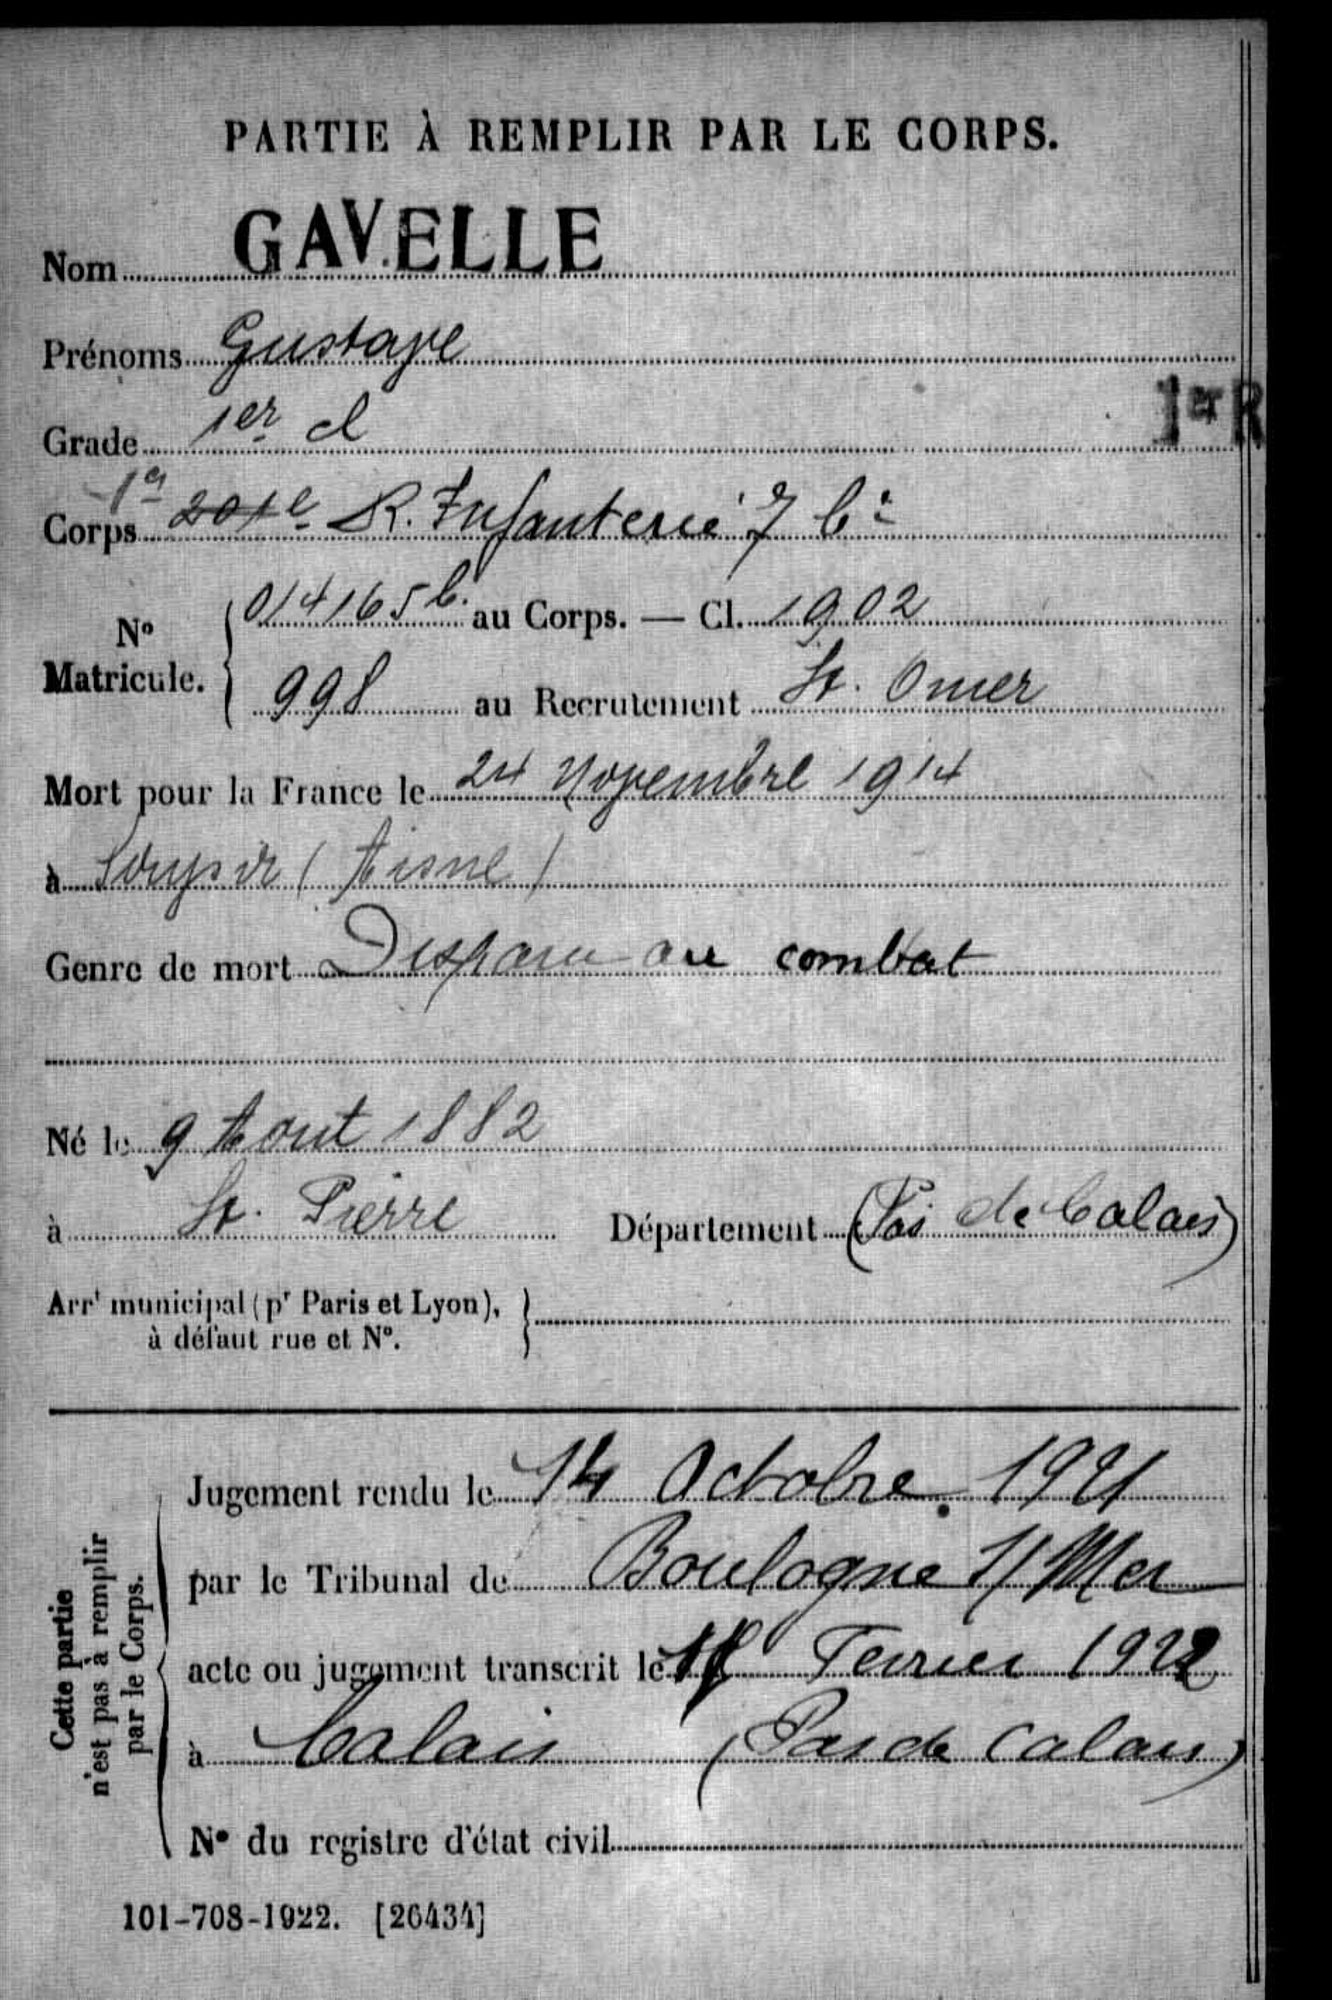 PARTIE À REMPLIR PAR LE CORPS.
Nom GAVELLE
Prénoms Gustave
1er R
Grade 1er cl
1er
Corps 201e R. Infanterie 7 Cie
No Matricule. 014165 C. au Corps. — Cl. 1902
998 au Recrutement St. Omer
Mort pour la France le 24 Novembre 1914
à Soupir (Aisne)
Genre de mort Disparu au combat
Né le 9 Aout 1882
à St. Pierre Département (Pas de Calais)
Arrt municipal (pr Paris et Lyon),
à défaut rue et No.
Cette partie
n'est pas à remplir
par le Corps.
Jugement rendu le 14 Octobre 1921
par le Tribunal de Boulogne s/ Mer
acte ou jugement transcrit le Fevrier 1922
à Calais (Pas de Calais)
No du registre d'état civil
101-708-1922. [26434]